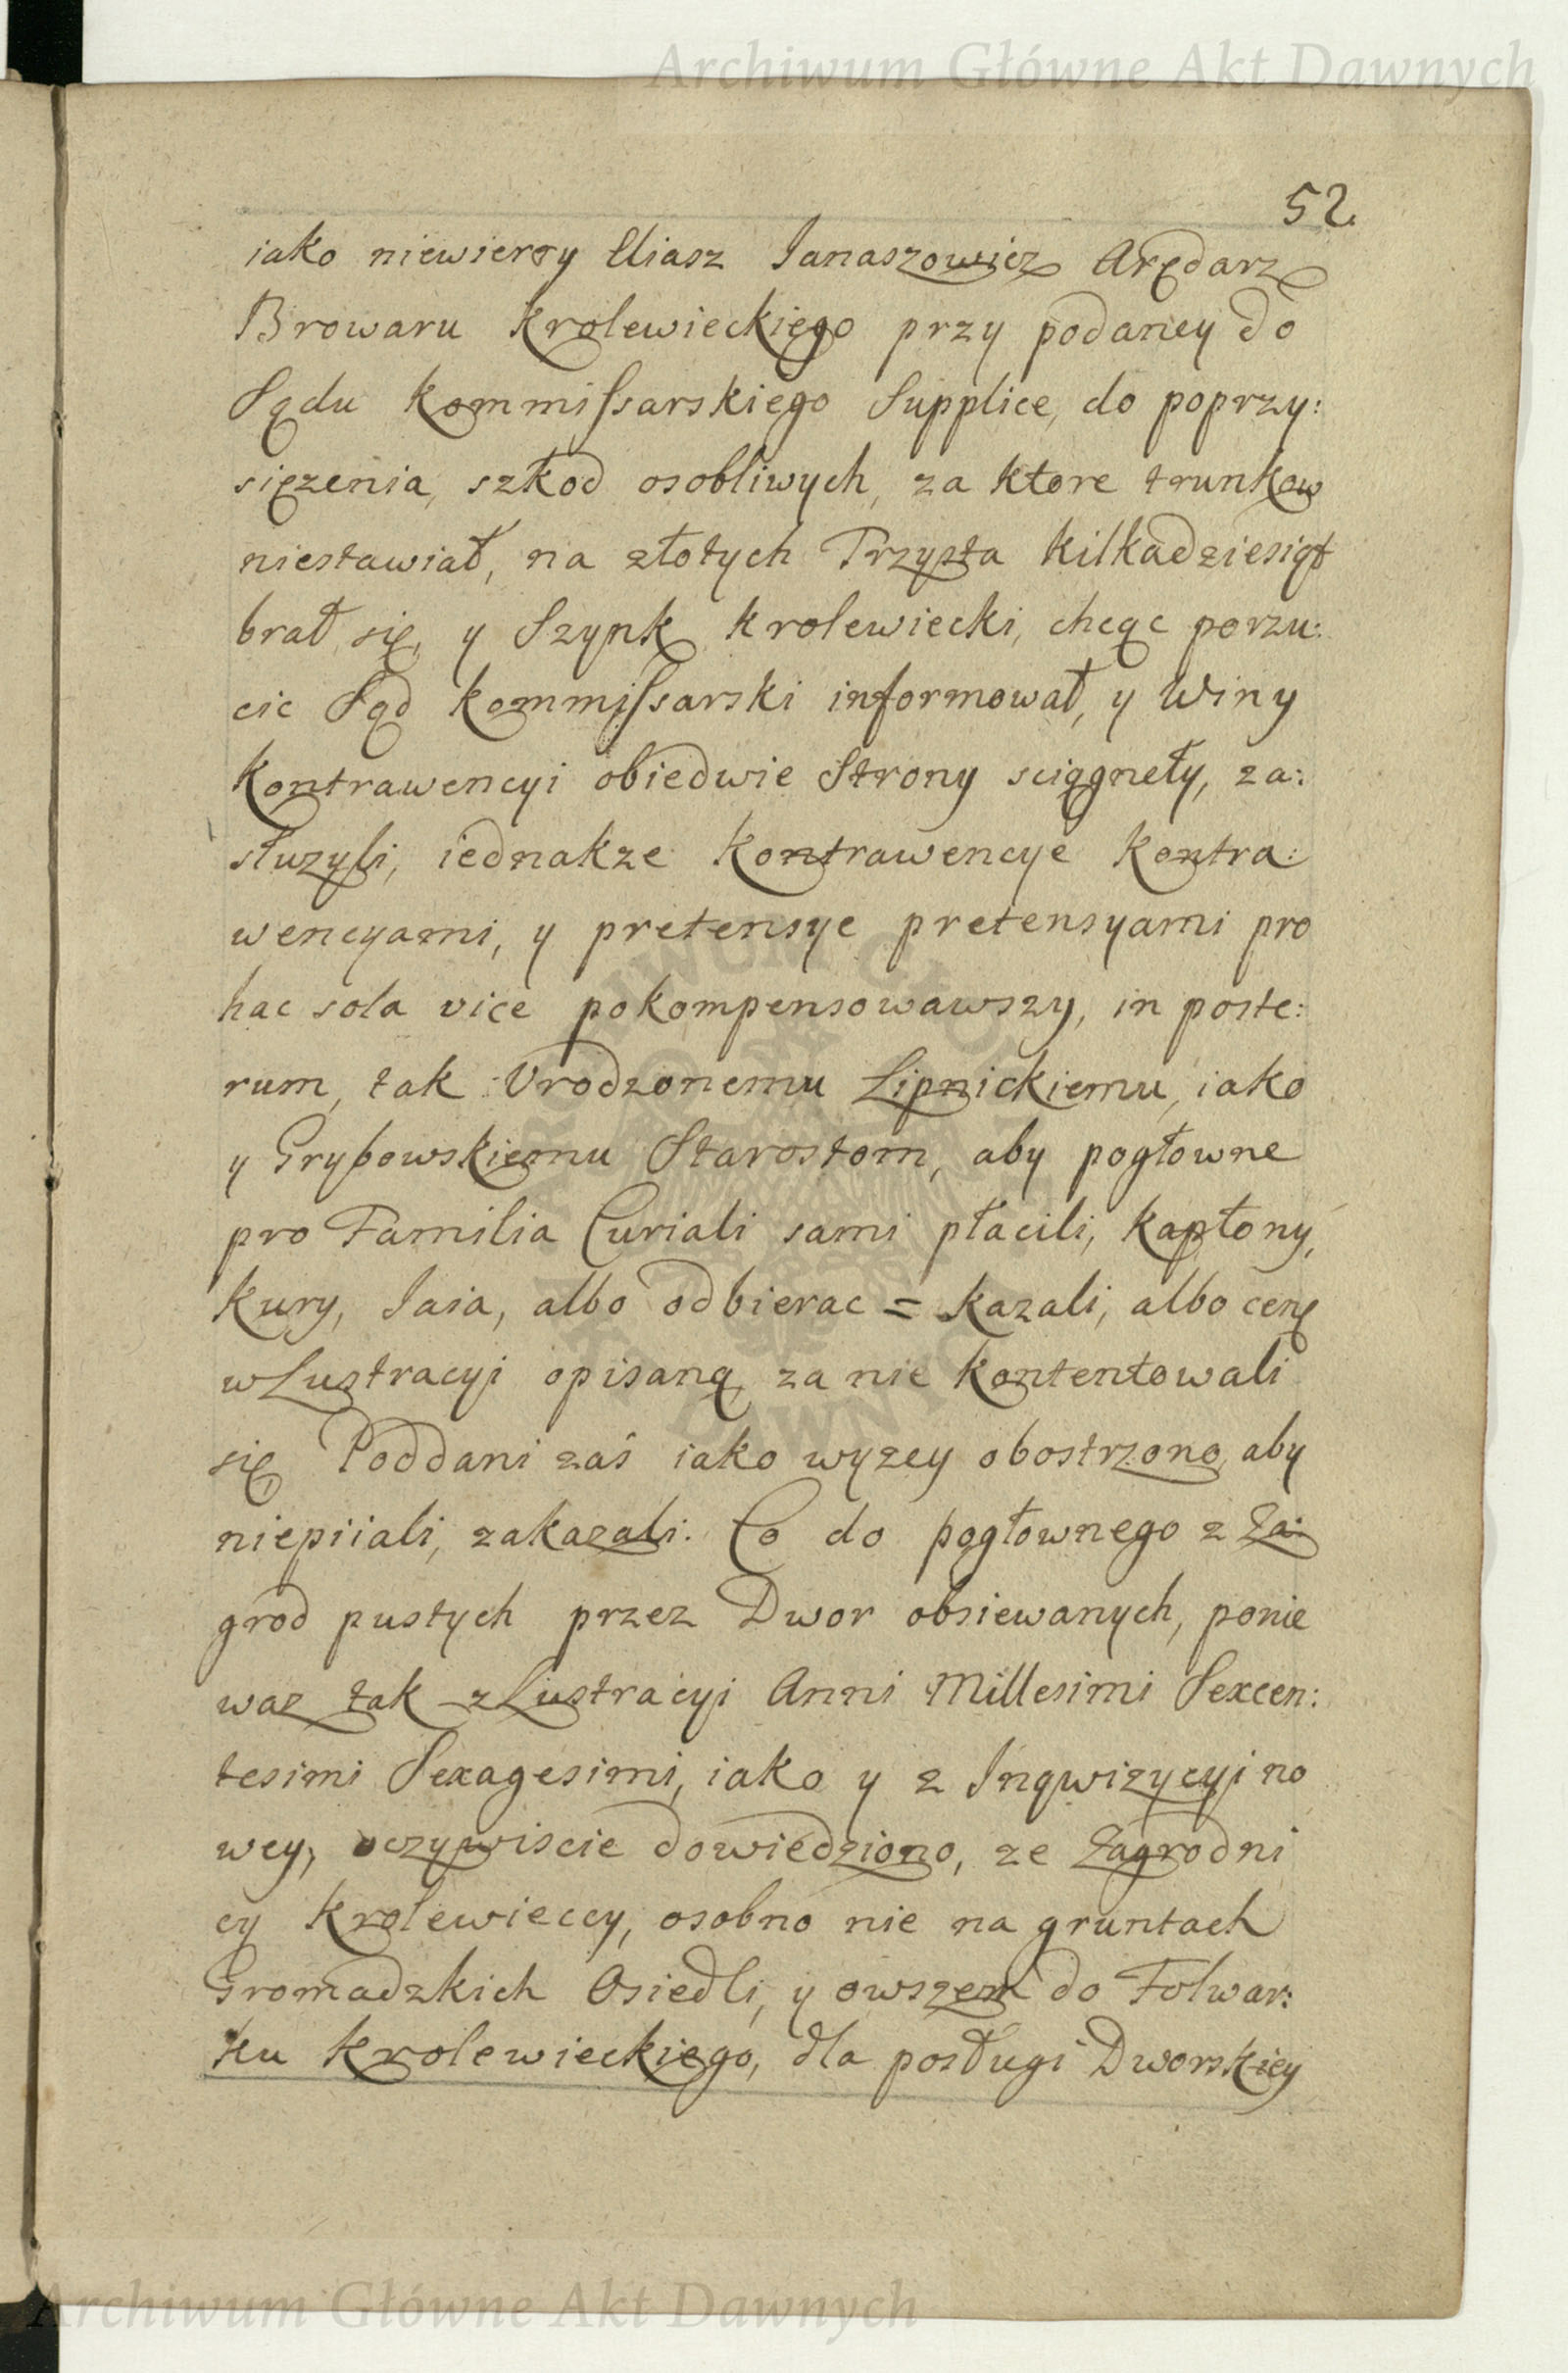 Archiwum Główne Akt Dawnych
52.
iako niewierny Eliasz Janaszowicz Arędarz
Browaru Krolewieckiego przy podaney do
Sądu Kommissarskiego Supplice, do poprzy:
siężenia, szkod osobliwych, za ktore trunkow
niestawiał, na złotych Trzysta kilkadziesiąt
brał się, y Szynk Krolewiecki, chcąc porzu:
cic Sąd Kommissarski informował, y Winy
Kontrawencyi obiedwie Strony sciągneły, za:
służyli, iednakze Kontrawencye Kontra:
wencyami, y pretensye pretensyami pro
hac sola vice pokompensowawszy, in poste:
rum, tak Urodzonemu Lipnickiemu, iako
y Grybowskiemu Starostom, aby pogłowne
pro Familia Curiali sami płacili, kapłony,
kury, Jaia, albo odbierac = kazali, albo cenę
w Lustracyi opisaną, za nie kontentowali
się, Poddani zaś iako wyzey obostrzono, aby
niepiiali, zakazali: Co do pogłownego z Za:
grod pustych przez Dwor obsiewanych, ponie
waz tak z Lustracyi Anni Millesimi Sexcen:
tesimi Sexagesimi, iako y z Inqwizycyi no
wey, oczywiscie dowiedziono, ze Zagrodni
cy Krolewieccy, osobno nie na gruntach
Gromadzkich Osiedli, y owszem do Folwar:
ku Krolewieckiego, dla posługi Dworskiey
Archiwum Główne Akt Dawnych